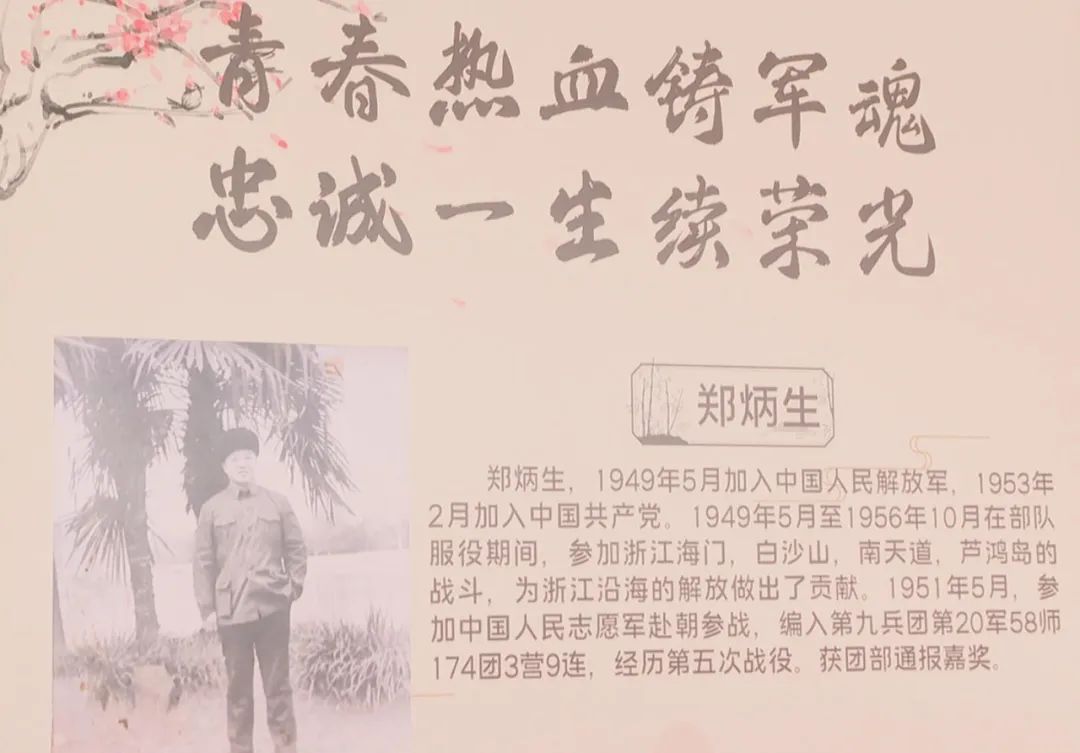 青春热血铸军魂
忠诚一生续荣光
郑炳生
郑炳生，1949年5月加入中国人民解放军，1953年
2月加入中国共产党。1949年5月至1956年10月在部队
服役期间，参加浙江海门，白沙山，南天道，芦鸿岛的
战斗，为浙江沿海的解放做出了贡献。1951年5月，参
加中国人民志愿军赴朝参战，编入第九兵团第20军58师
174团3营9连，经历第五次战役。获团部通报嘉奖。